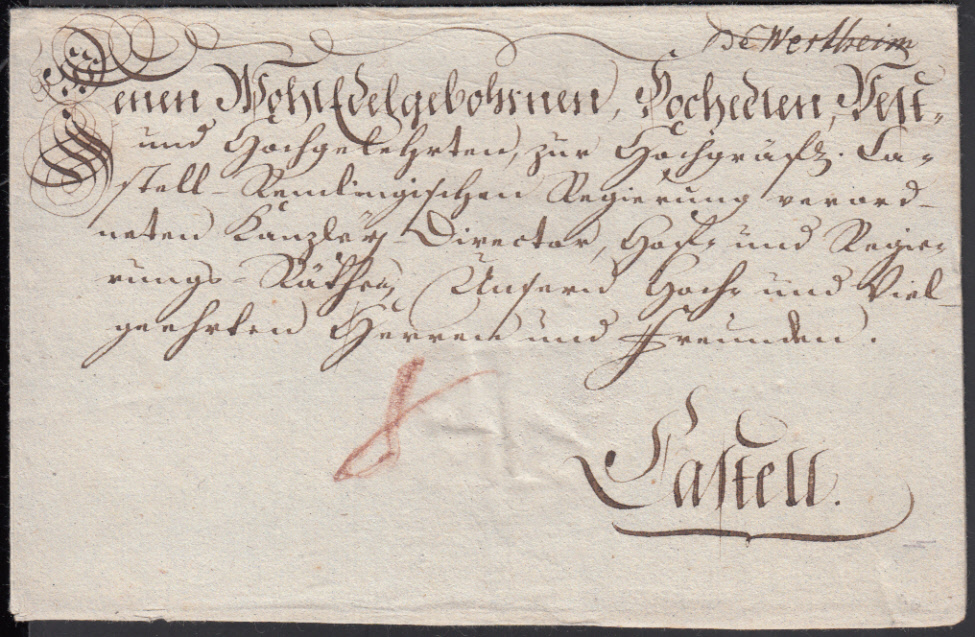 De Wertheim
Denen WohlEdelgebohrnen, Hochedlen, Vest-
und Hochgelehrten, zur Hochgräfl. Ca-
stell-Remlingischen Regierung verord-
neten Kanzler, Director, Hof- und Regie-
rungs-Räthen, Unsern Hoch- und Viel
geehrten Herren und Freunden.
Castell.